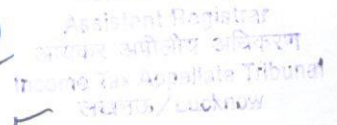 Assistant Registrar
आयकर अपीलीय अधिकरण
Income Tax Appellate Tribunal
लखनऊ/Lucknow